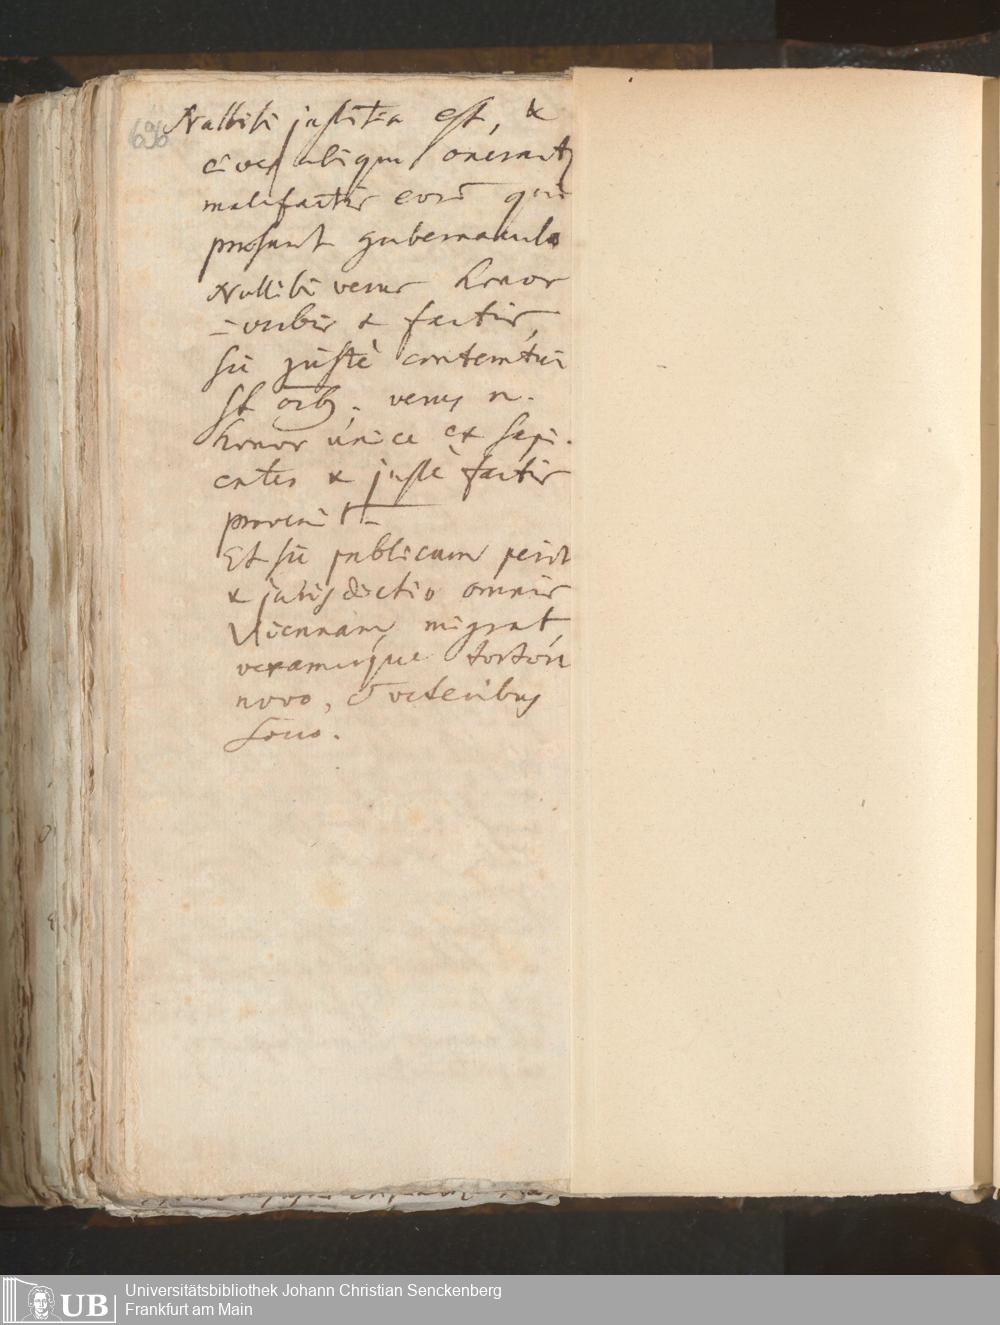 696
Nullibi justitia est, &
cives ubique onerant
malefactis eorū qui
prosunt gubernaculo
Nullibi verus honor
verbis & factis,
sū juste contemtui
st orb. verus n.
honor unice ex sapi-
entes & justè factis
provenit
Et sū publicum perit
& jurisdictio omnis
Viennam migrat
vexamurque
novo, veteribus
Universitätsbibliothek Johann Christian Senckenberg
Frankfurt am Main
UB